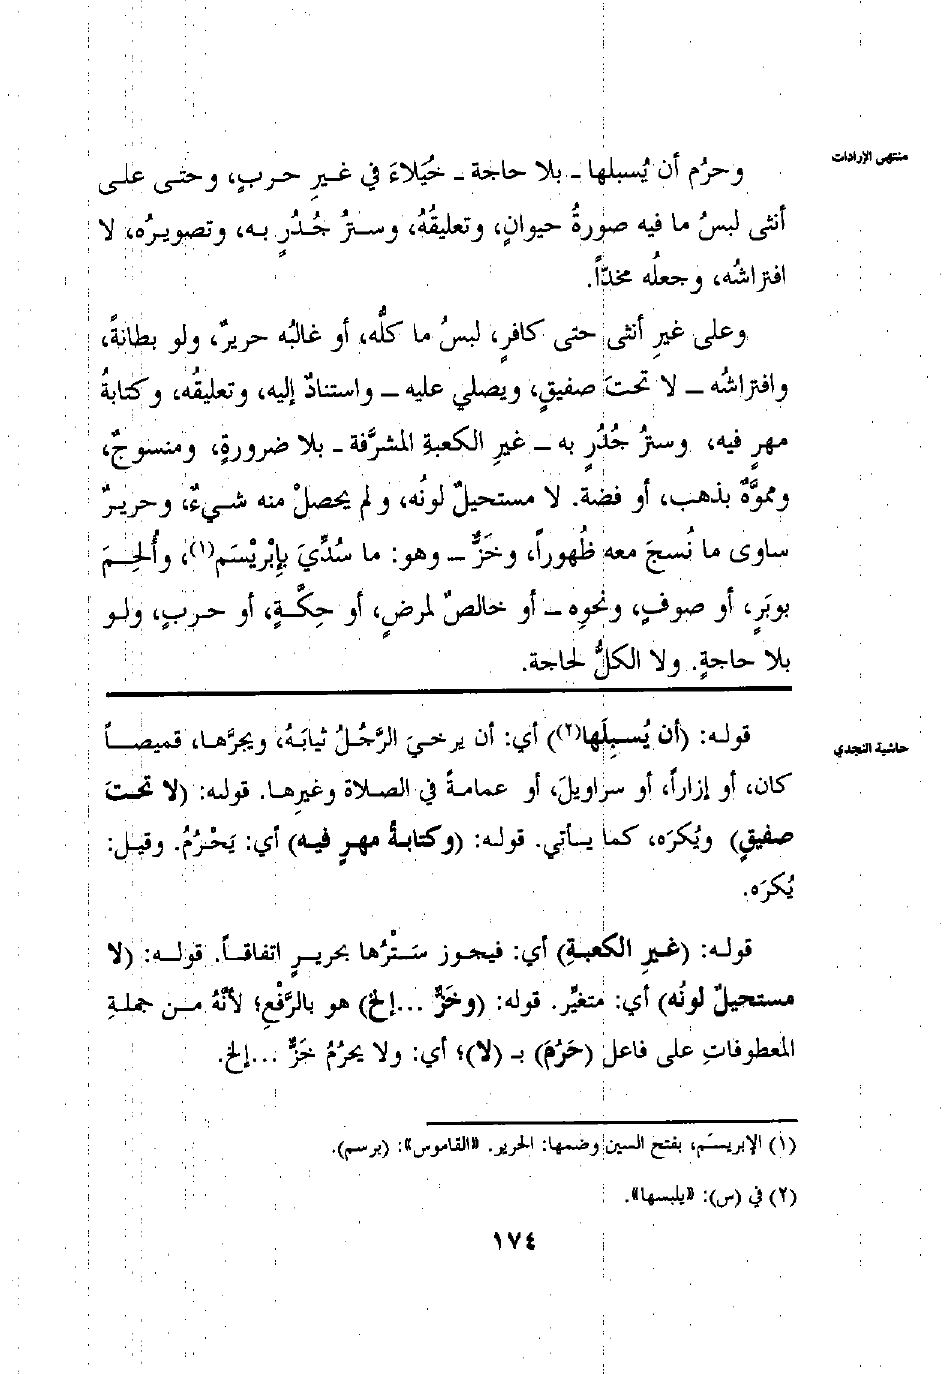 منتهى الإرادات
وحرُم أن يُسبلها ـ بلا حاجة ـ خُيَلاءَ في غيرِ حربٍ، وحتى على
أنثى لبسُ ما فيه صورةُ حيوانٍ، وتعليقُهُ، وسترُ جُدُرٍ به، وتصويرُه، لا
افتراشُه، وجعلُه مخدّاً.
وعلى غيرِ أنثى حتى كافرٍ، لبسُ ما كلُّه، أو غالبُه حريرٌ، ولو بطانةً،
وافتراشُه ـ لا تحتَ صفيقٍ، ويصلي عليه ـ واستنادٌ إليه، وتعليقُه، وكتابةُ
مهرٍ فيه، وسترُ جُدُرٍ به ـ غيرِ الكعبةِ المشرَّفة ـ بلا ضرورةٍ، ومنسوجٌ،
ومموَّهٌ بذهب، أو فضة. لا مستحيلٌ لونُه، ولم يحصلْ منه شيءٌ، وحريرٌ
ساوى ما نُسجَ معه ظُهوراً، وخَزٌّ ـ وهو: ما سُدِّيَ بإبْريْسَم(١)، وأُلحِمَ
بوبَرٍ، أو صوفٍ، ونحوِه ـ أو خالصٌ لمرضٍ، أو حِكَّةٍ، أو حربٍ، ولو
بلا حاجةٍ. ولا الكلُّ لحاجة.
حاشية النجدي
قوله: (أن يُسبِلَها(٢)) أي: أن يرخيَ الرَّجُلُ ثيابَهُ، ويجرَّها، قميصاً
كان، أو إزاراً، أو سراويلَ، أو عمامةً في الصلاة وغيرِها. قوله: (لا تحتَ
صفيقٍ) ويُكرَه، كما يأتي. قوله: (وكتابةُ مهرٍ فيه) أي: يَحْرُمُ. وقيل:
يُكرَه.
قوله: (غيرِ الكعبةِ) أي: فيجوز سَتْرُها بحريرٍ اتفاقاً. قوله: (لا
مستحيلٌ لونُه) أي: متغيِّر. قوله: (وخَزٌّ ...إلخ) هو بالرَّفْعِ؛ لأنَّهُ من جملةِ
المعطوفاتِ على فاعل (حَرُمَ) بـ (لا)؛ أي: ولا يحرُمُ خَزٌّ ...إلخ.
(١) الإبريسَم، بفتح السين وضمها: الحرير. «القاموس»: (برسم).
(٢) في (س): «يلبسها».
١٧٤